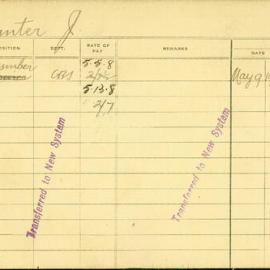 unter J
OSITION DEPT. RATE OF PAY REMARKS DATE
umber CBS 5.5.8 May 9 1
5 13.8
2/7
Transferred to New System
Transferred to New System